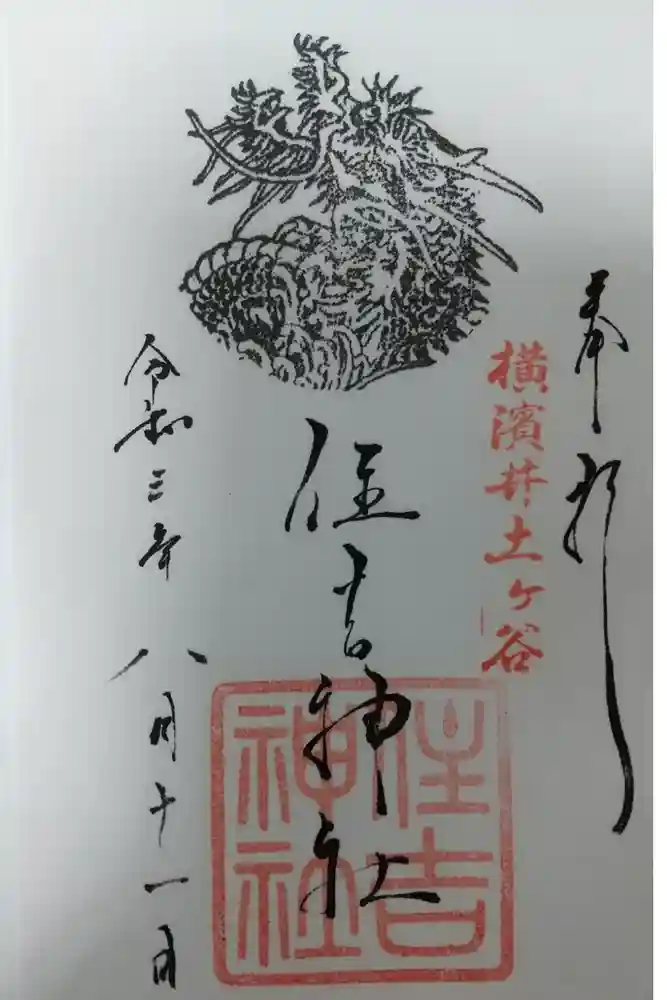 奉拝
横濱井土ヶ谷
住吉神社
住吉
神社
令和三年八月十一日